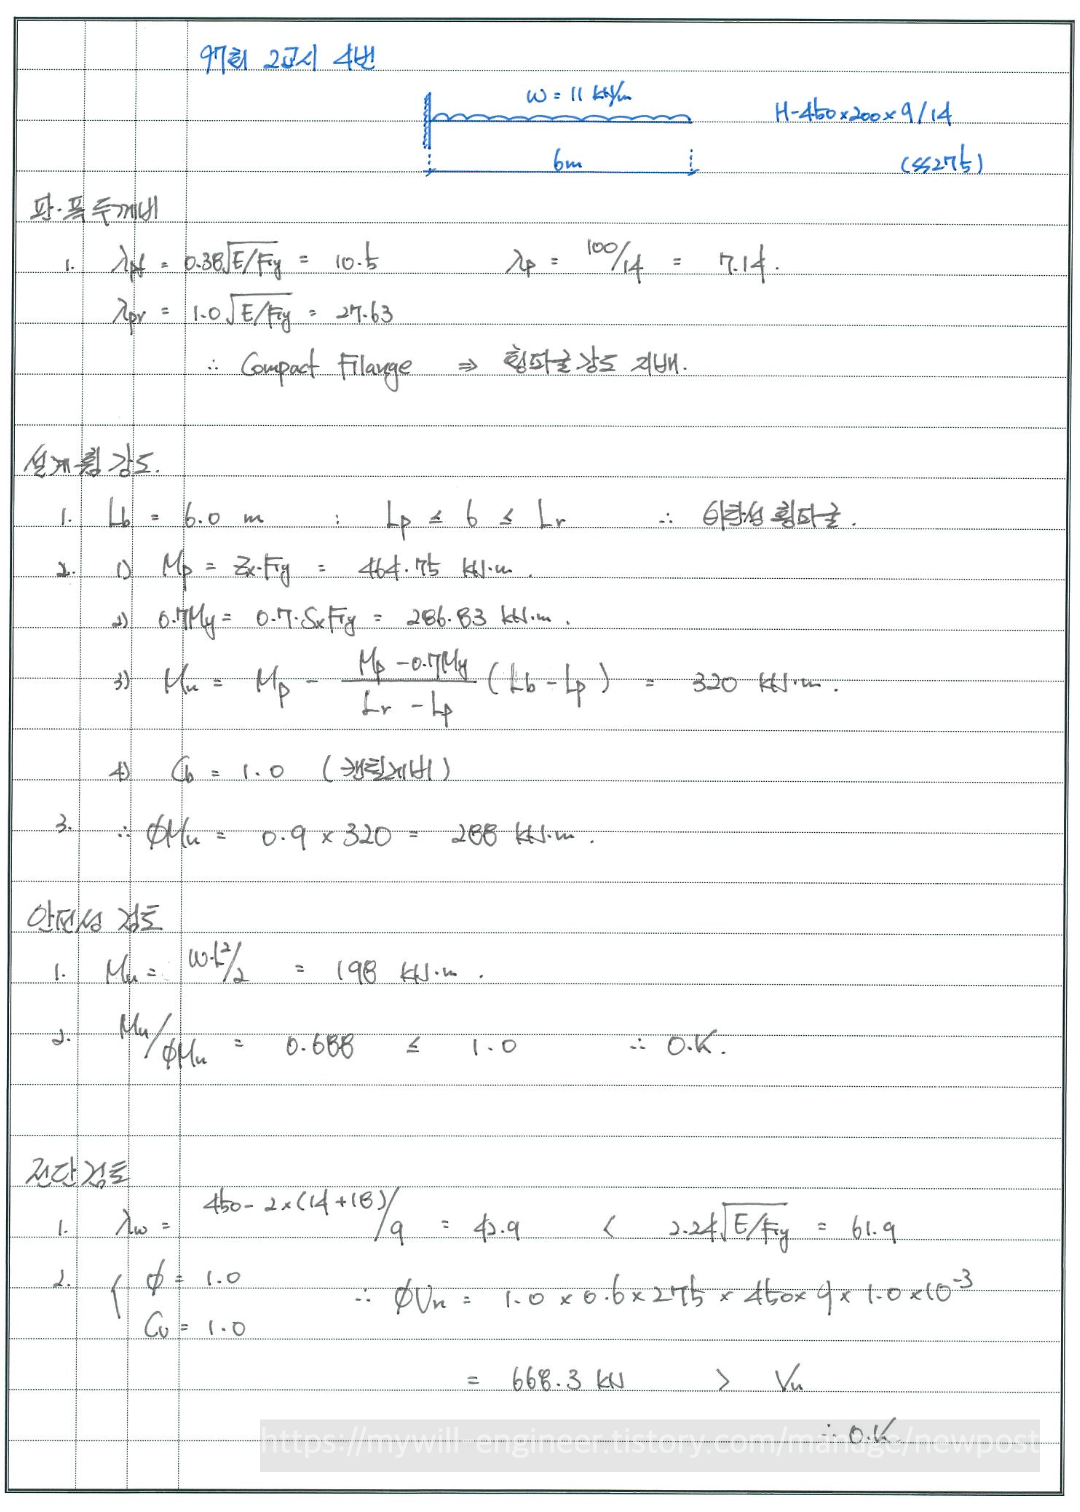 97회 2교시 4번
w = 11 kN/m
H-450×200×9/14
6m
(SS275)
판·폭두께비
1. λpf = 0.38√E/Fy = 10.5    λf = 100/14 = 7.14.
λpr = 1.0√E/Fy = 27.63
∴ Compact Flange ⇒ 횡좌굴강도 지배.
설계휨강도.
1. Lb = 6.0 m : Lp ≤ 6 ≤ Lr ∴ 비탄성 횡좌굴.
2. 1) Mp = Zx·Fy = 464.75 kN·m.
2) 0.7My = 0.7·SxFy = 286.83 kN·m.
3) Mn = Mp - (Mp - 0.7My)/(Lr - Lp) (Lb - Lp) = 320 kN·m.
4) Cb = 1.0 (캔틸레버)
3. ∴ ϕMn = 0.9 × 320 = 288 kN·m.
안전성 검토
1. Mu = w·l²/2 = 198 kN·m.
2. Mu/ϕMn = 0.688 ≤ 1.0 ∴ O.K.
전단검토
1. λw = 450-2×(14+18)/9 = 42.9 < 2.24√E/Fy = 61.9
2. { ϕ = 1.0
Cv = 1.0
∴ ϕVn = 1.0 × 0.6 × 275 × 450 × 9 × 1.0 × 10⁻³
= 668.3 kN > Vu
∴ O.K
https://mywill-engineer.tistory.com/manage/newpost